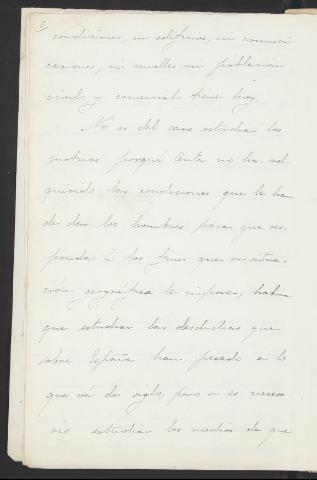 condiciones, ni edificios, ni comuni
caciones, ni muelles ni población
civil y comercial tiene hoy.
No es del caso estudiar los
motivos porqué Ceuta no ha ad
quirido las condiciones que le han
de dar los hombres para que res
ponda á los fines que su situa
ción geográfica le impone, habria
que estudiar las desdichas que
sobre España han pesado en lo
que vá de siglo, pero si es necesa
rio estudiar los medios de que